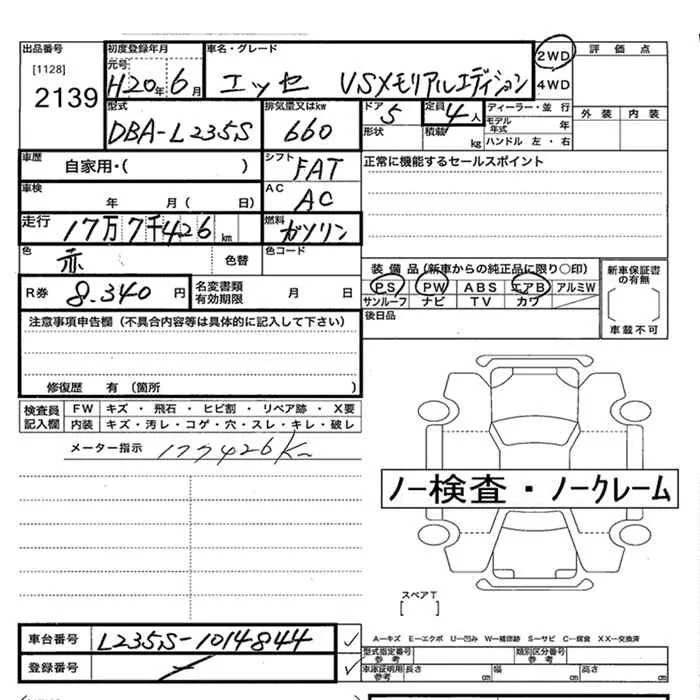 出品番号 初度登録年月 車名・グレード 2WD 評価点
[1128] 元号 H20年6月 エッセ VSメモリアルエディション 4WD
2139 型式 排気量又はkw ドア 定員 ディーラー・並行 外装 内装
DBA-L235S 660 5 4人 モデル年式 年
形状 積載 kg ハンドル 左・右
車歴 自家用・( ) シフト FAT 正常に機能するセールスポイント
車検 年 月( 日) AC AC
走行 17万7千426km 燃料 ガソリン
色 赤 色替 色コード 装備品(新車からの純正品に限り〇印) 新車保証書の有無
R券 8.340円 名変書類有効期限 月 日 PS PW ABS エアB アルミW
サンルーフ ナビ TV カワ
注意事項申告欄(不具合内容等は具体的に記入して下さい) 後日品 車載不可
修復歴 有(箇所 )
検査員記入欄 FW キズ・飛石・ヒビ割・リペア跡・X要
内装 キズ・汚レ・コゲ・穴・スレ・キレ・破レ
メーター指示 177426K
ノー検査・ノークレーム
スペアT
[ ]
車台番号 L235S-1014844 A-キズ E-エクボ U-凹み W-補修跡 S-サビ C-腐食 XX-交換済
型式指定番号 参考 類別区分番号 参考
登録番号 車庫証明用参考 長さ cm 幅 cm 高さ cm